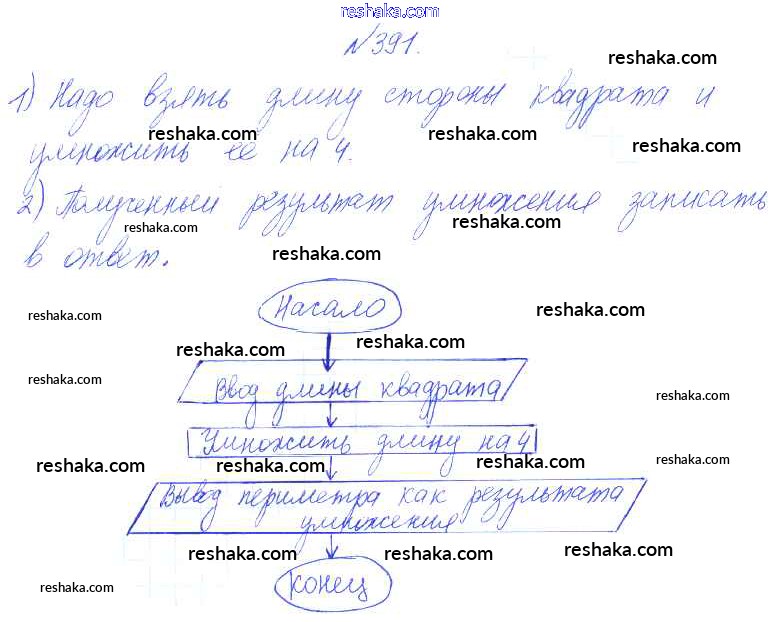 reshaka.com
№391.
reshaka.com
1) Надо взять длину стороны квадрата и
reshaka.com reshaka.com reshaka.com
умножить её на 4.
2) Полученный результат умножения записать
reshaka.com reshaka.com
в ответ.
reshaka.com
Начало
reshaka.com reshaka.com
reshaka.com reshaka.com
Ввод длины квадрата
reshaka.com reshaka.com
Умножить длину на 4
reshaka.com reshaka.com reshaka.com reshaka.com
Вывод периметра как результата
умножения
reshaka.com reshaka.com reshaka.com
Конец
reshaka.com reshaka.com